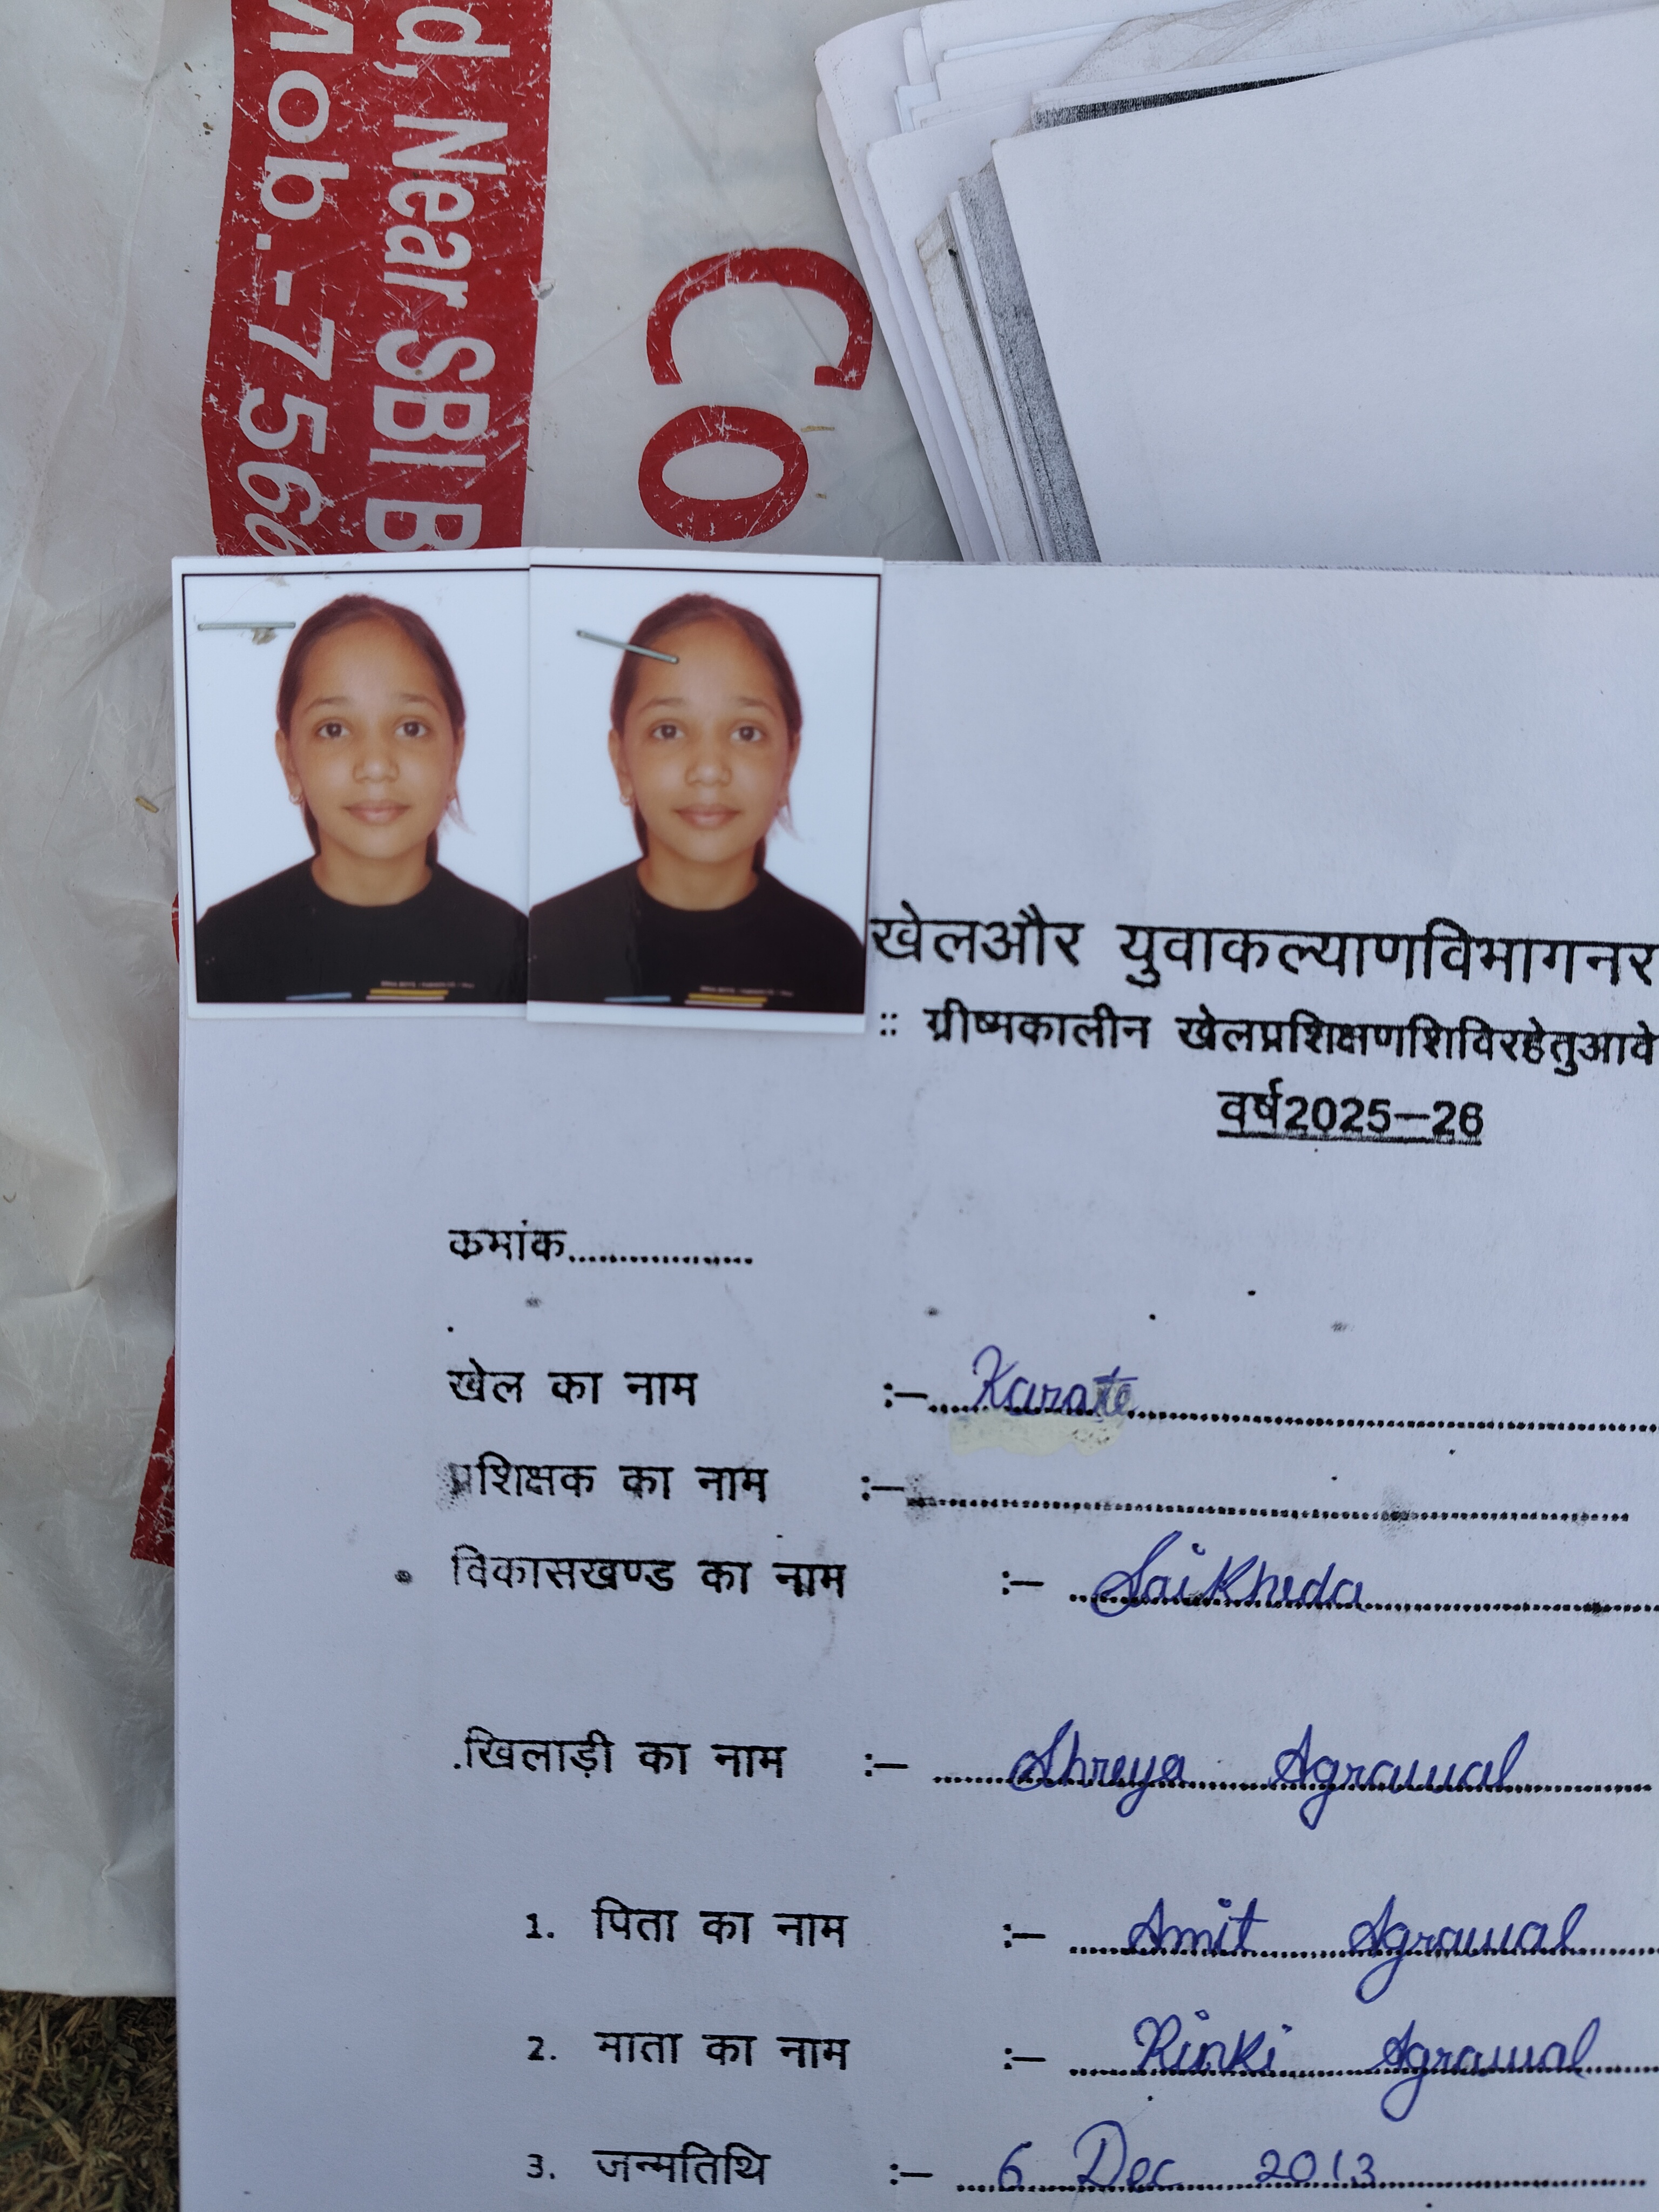 d, Near SBI B
Mob.-756
CO
खेलऔर युवाकल्याणविभागनर
:: ग्रीष्मकालीन खेलप्रशिक्षणशिविरहेतुआवे
वर्ष2025–26
कमांक..................
खेल का नाम :– Karate
प्रशिक्षक का नाम :–
विकासखण्ड का नाम :– Saikheda
.खिलाड़ी का नाम :– Shreya Agrawal
1. पिता का नाम :– Amit Agrawal
2. माता का नाम :– Rinki Agrawal
3. जन्मतिथि :– 6 Dec 2013